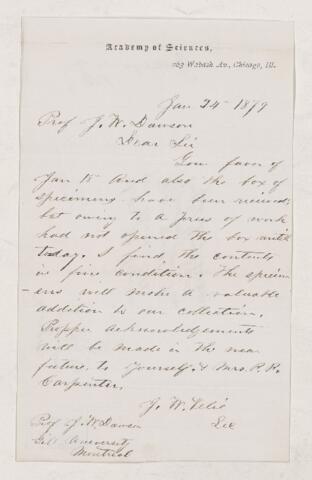 Academy of Sciences,
263 Wabash Av., Chicago, Ill.
Jan 24 1879
Prof J. W. Dawson
Dear Sir
Your favor of
Jan 15 and also the box of
specimens have been received,
but owing to a press of work
had not opened the box until
today. I find the contents
in fine condition. The specim-
-ens will make a valuable
addition to our collection.
Propper acknowledgements
will be made in the near
future, to yourself & Mrs. P. P.
Carpenter.
J. W. Velie
Sec
Prof J. W. Dawson
University
Montreal